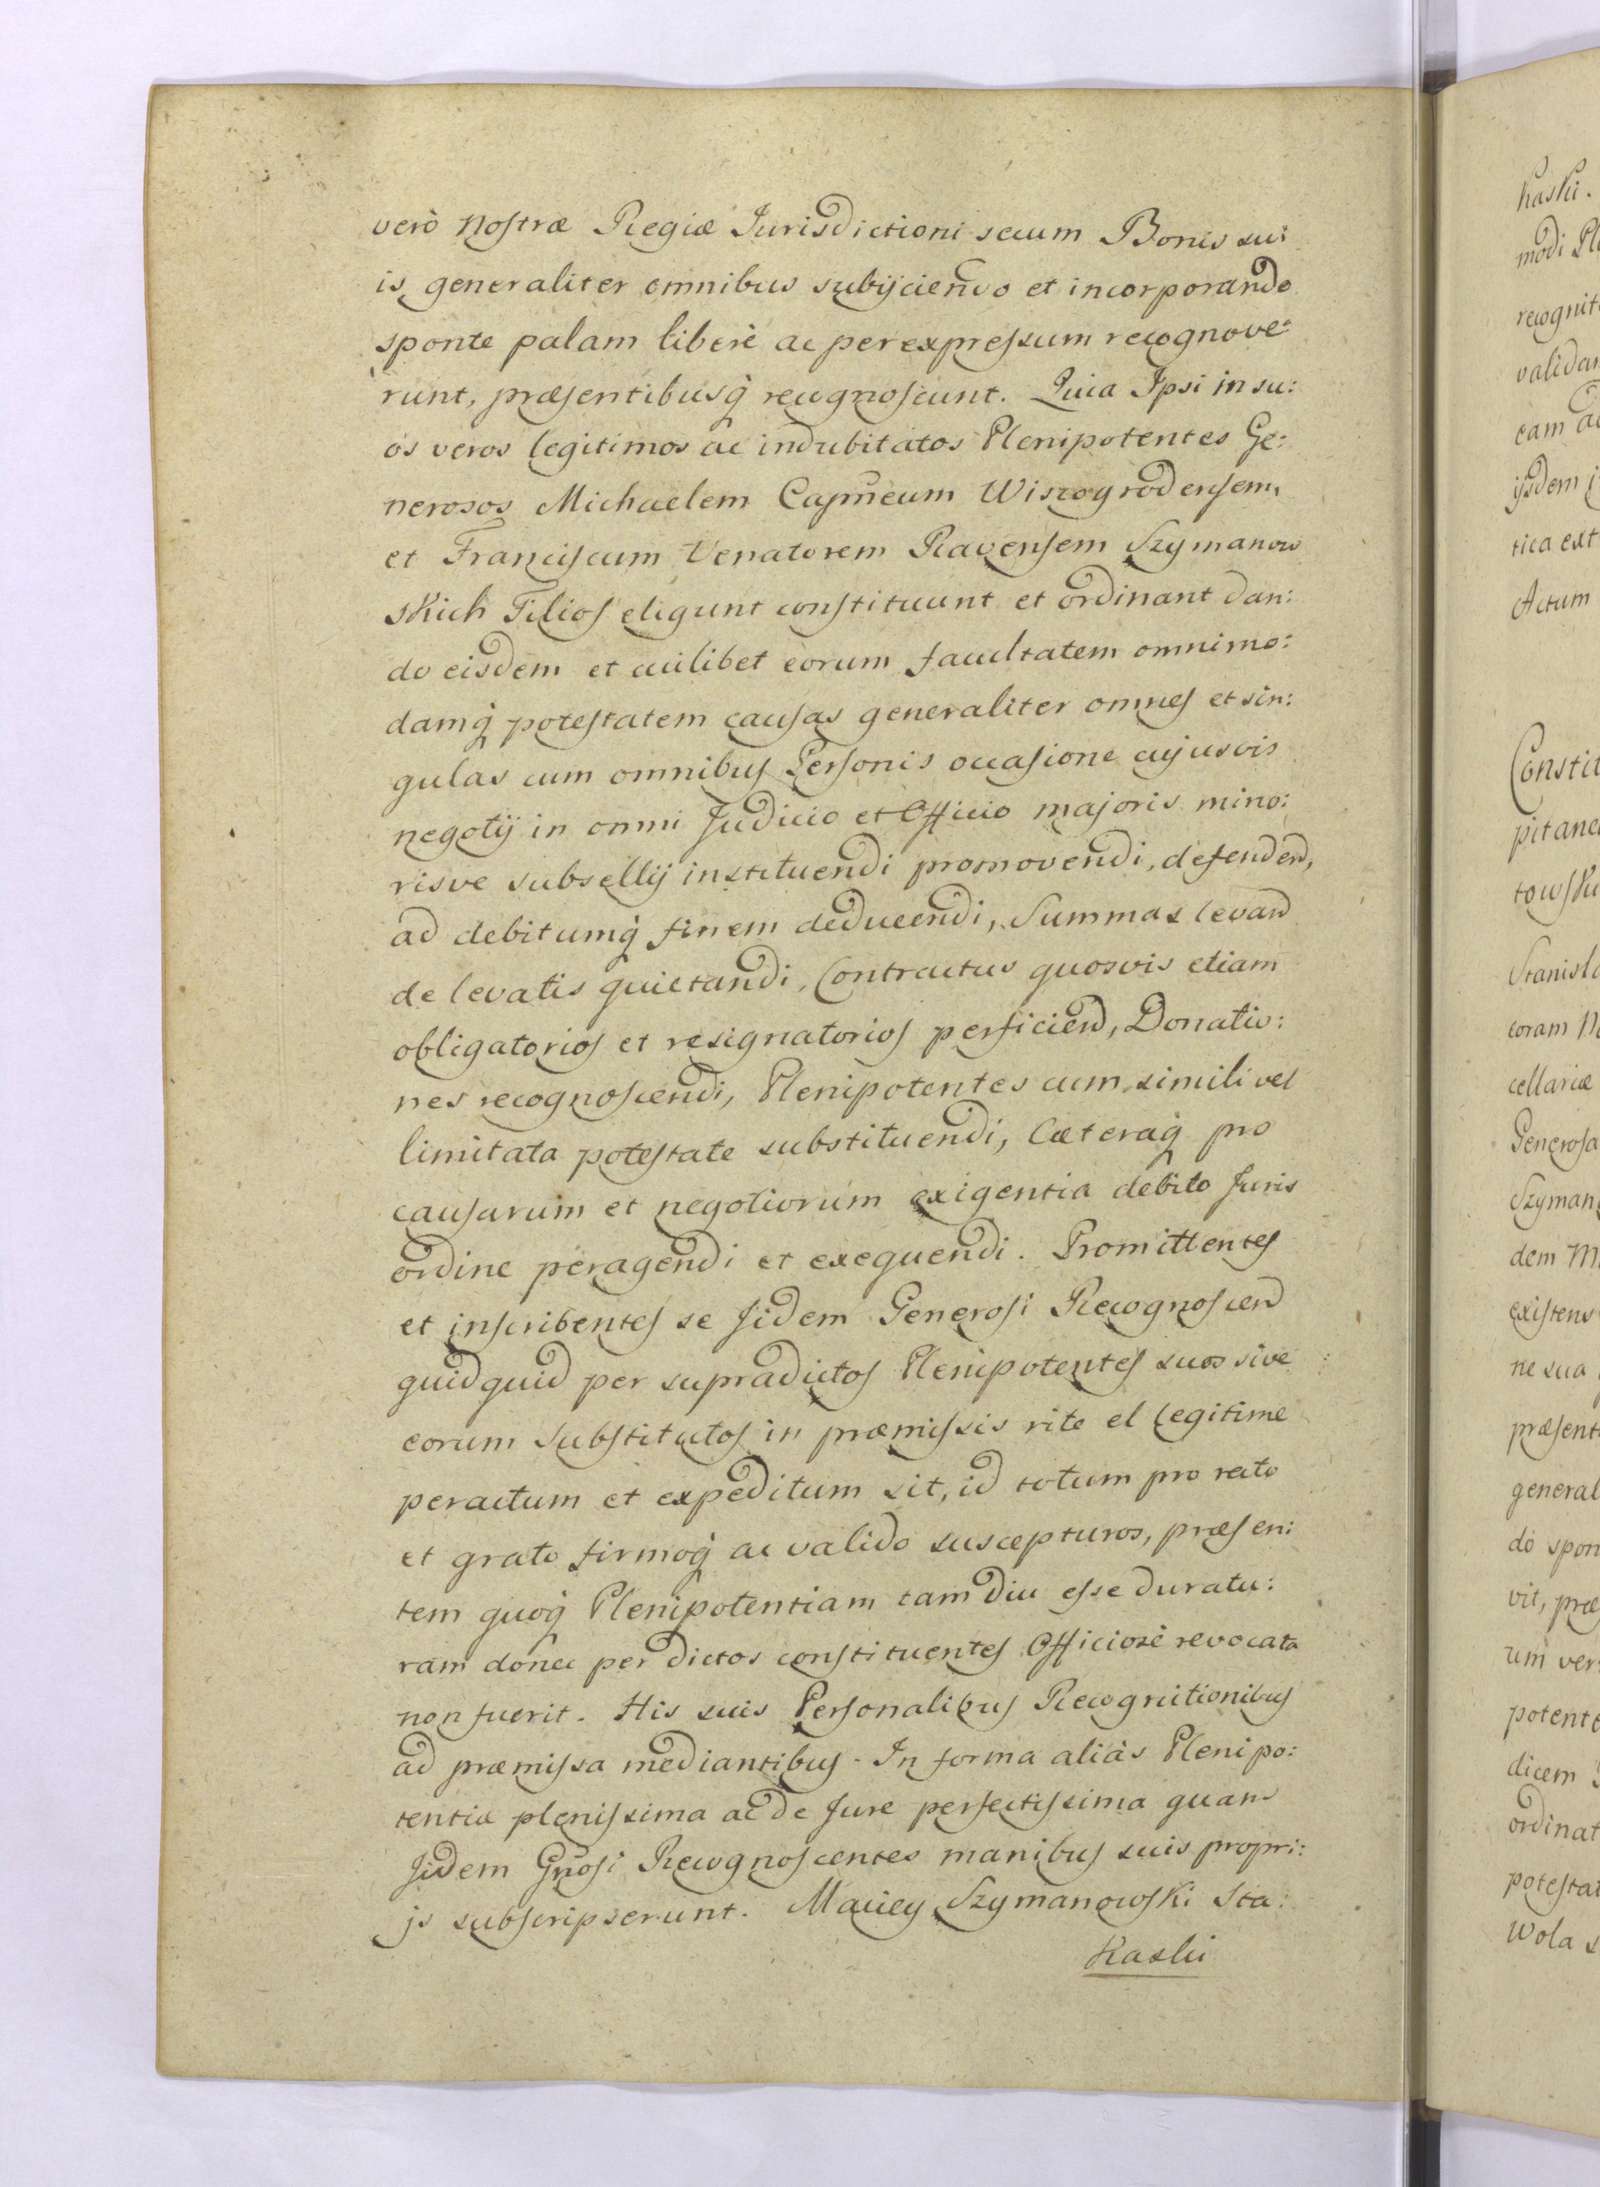 verò Nostræ Regiæ Jurisdictioni secum Bonis su:
is generaliter omnibus subijciendo et incorporando
sponte palam liberè ac per expressum recognove:
runt, præsentibusq̀ recognoscunt. Quia Ipsi in su:
os veros legitimos ac indubitatos Plenipotentes Ge:
nerosos Michaelem Capneum Wiszogrodensem,
et Franciscum Venatorem Ravensem Szymanow
skich Filios eligunt constituunt et ordinant dan:
do eisdem et cuilibet eorum facultatem omnimo:
damq̀ potestatem causas generaliter omnes et sin:
gulas cum omnibus Personis occasione cujusvis
negotij in omni Judicio et Officio majoris mino:
risve subsellij instituendi promovendi, defendend,
ad debitumq̀ finem deducendi, Summas levand
de levatis quietandi, Contractus quosvis etiam
obligatorios et resignatorios perficiend, Donatio:
nes recognoscendi, Plenipotentes cum simili vel
limitata potestate substituendi, Cæteraq̀ pro
causarum et negotiorum exigentia debito Juris
ordine peragendi et exequendi. Promittentes
et inscribentes se Jidem Generosi Recognoscend
quidquid per supradictos Plenipotentes suos sive
eorum Substitutos in præmissis rite et Legitime
peractum et expeditum sit, id totum pro rato
et grato firmoq̀ ac valido suscepturos, præsen:
tem quoq̀ Plenipotentiam tamdiu esse duratu:
ram donec per dictos constituentes Officiosè revocata
non fuerit. His suis Personalibus Recognitionibus
ad præmissa mediantibus. In forma aliàs Plenipo:
tentia plenissima ac de Jure perfectissima quam
Jidem Gnosi Recognoscentes manibus suis propri:
js subscripserunt. Maciey Szymanowski Sta:
Kaski
Kaski.
modi
recognit
valida
eam
ijsdem
tica ext
Actum
Constit
pitane
towsk
Stanisl
coram
cellariæ
Generosa
Szyman
dem
existens
ne sua
præsent
general
do spon
vit, præ
um ver
potent
dicem
ordinat
potesta
Wola